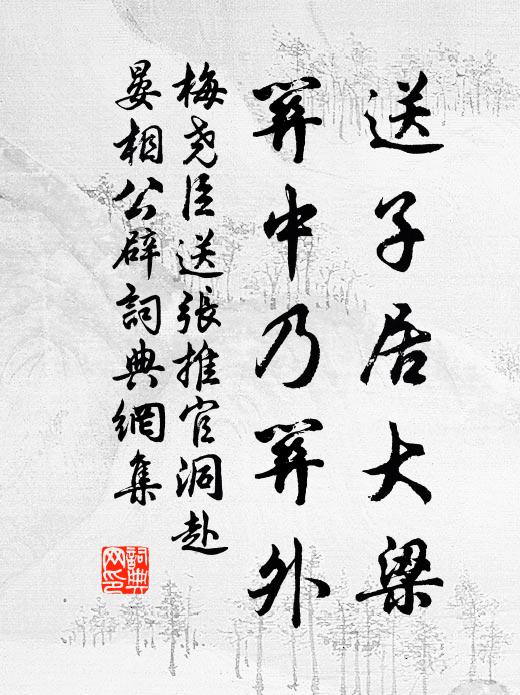 送子居大梁
關中乃關外
梅堯臣送張推官洞赴
晏相公辟詞典網集
詞典
网印